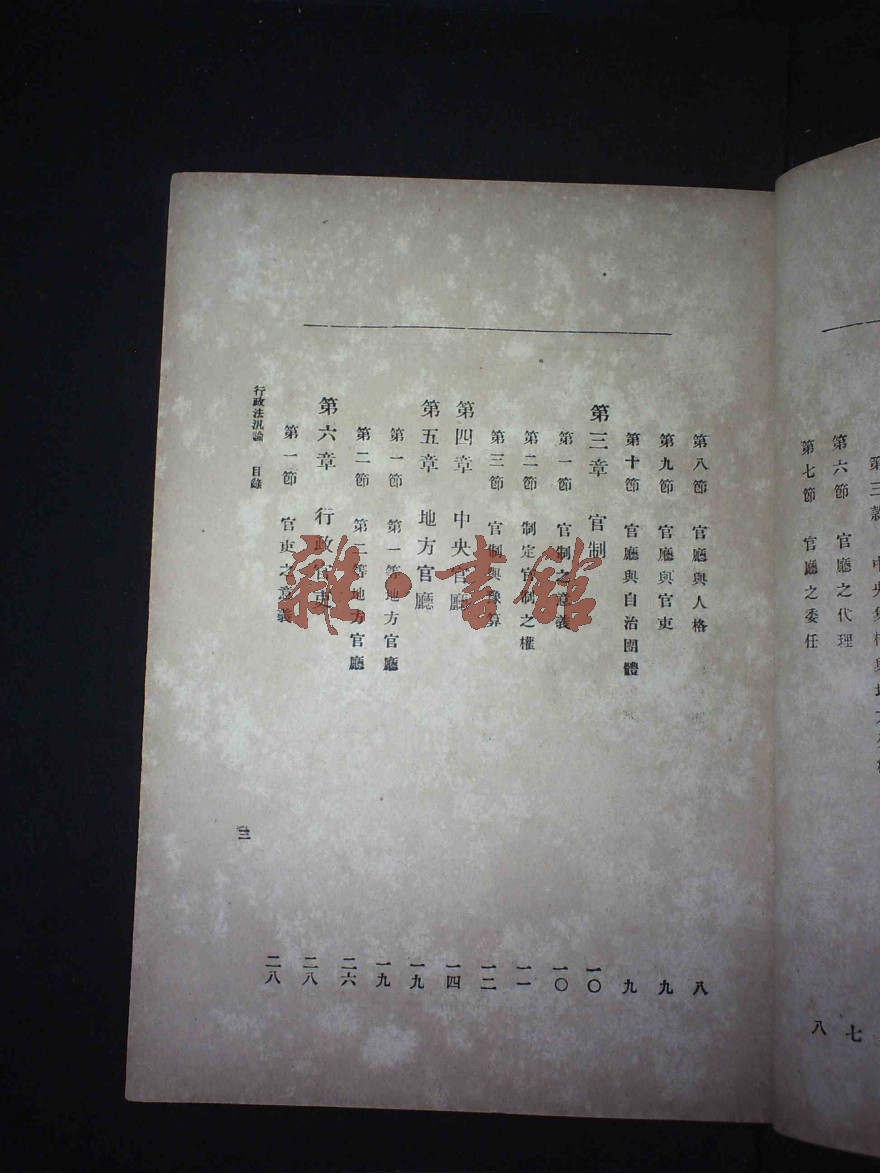 第六節　官廳之代理　七
第七節　官廳之委任　八
第八節　官廳與人格　八
第九節　官廳與官吏　九
第十節　官廳與自治團體　九
第三章　官制　一〇
第一節　官制之意義　一〇
第二節　制定官制之權　一一
第三節　官制與豫算　一二
第四章　中央官廳　一四
第五章　地方官廳　一九
第一節　第一等地方官廳　一九
第二節　第二等地方官廳　二六
第六章　行政官吏　二八
第一節　官吏之意義　二八
行政法汎論　目錄
三
雜·書館